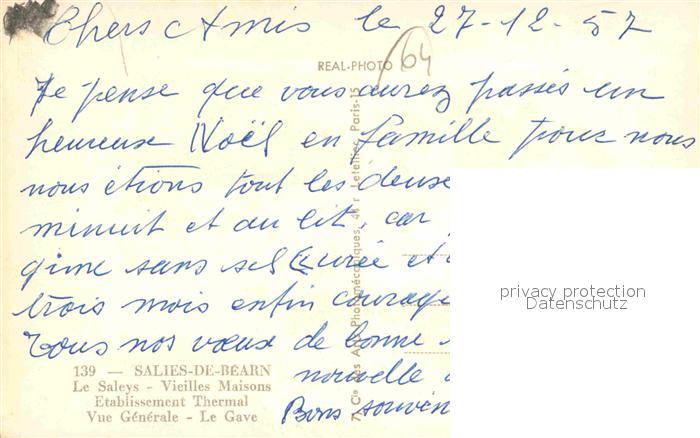 Chers Amis le 27-12-57
REAL-PHOTO
64
Je pense que vous aurez passés un
heureuse Noël en famille pour nous
nous étions tout les deuse
minuit et au lit, car
gime sans sel Curée et
trois mois enfin courage
Tous nos vœux de bonne
nouvelle
Bons souven
139 — SALIES-DE-BÉARN
Le Saleys - Vieilles Maisons
Etablissement Thermal
Vue Générale - Le Gave
71 Cie des Arts Photomécaniques, 44 r. Letellier, Paris-15
privacy protection
Datenschutz